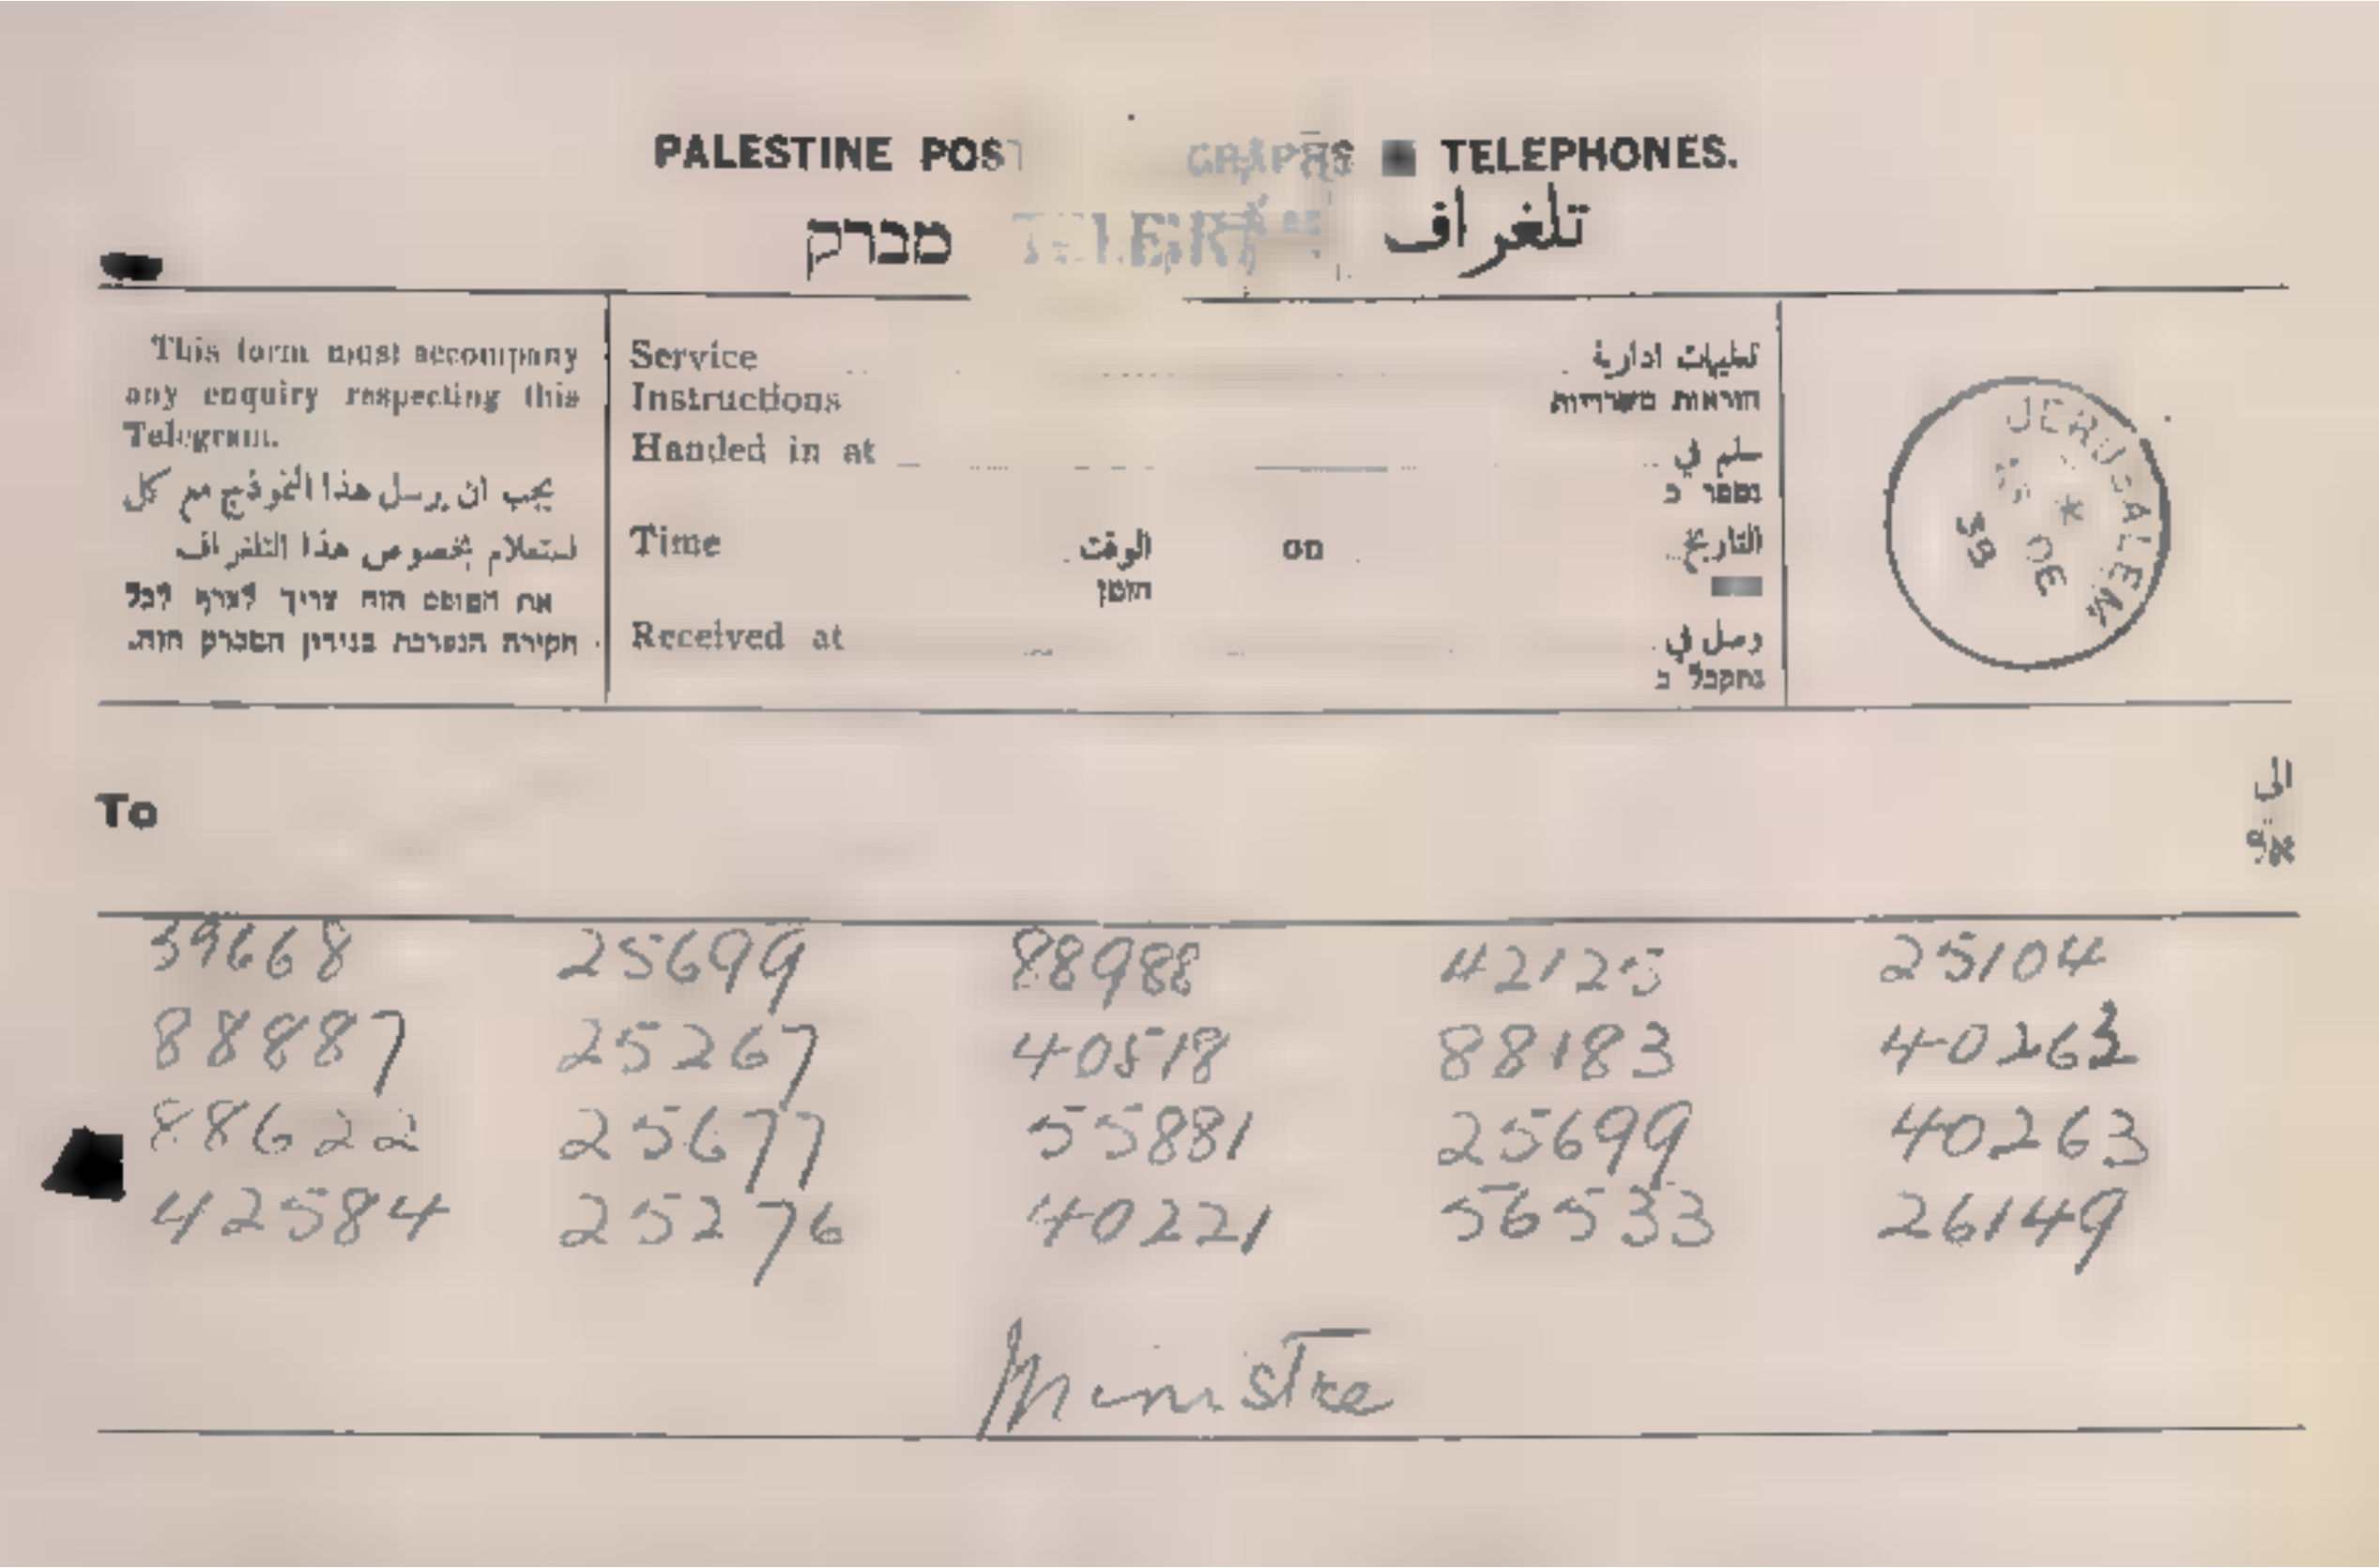 PALESTINE POST GRAPHS TELEPHONES.
מברק TELEGRA تلغراف
This form must accompany
any enquiry respecting this
Telegram.
يجب ان يرسل هذا النموذج مع كل
استعلام بخصوص هذا التلغراف
את הטופס הזה צריך לצרף לכל
חקירה הנערכת בנידון המברק הזה.
Service تعليمات ادارية
Instructions הוראות משרדיות
Handed in at سلم في
נמסר ב
Time الوقت on التاريخ
הזמן
Received at وصل في
נתקבל ב
JERUSALEM
DE
39
To الى
אל
39668 25699 88988 42125 25104
88887 25267 40518 88183 40263
88622 25677 55881 25699 40263
42584 25276 40221 56533 26149
Ministre